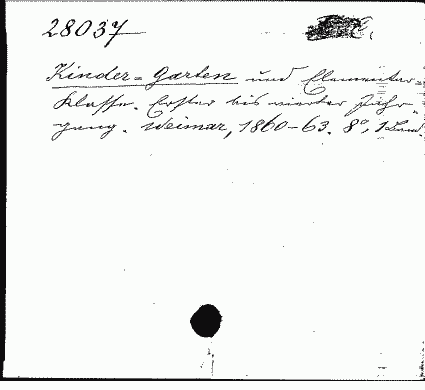 28037
Kinder-Garten und Elementar-
Klasse. Erster bis vierter Jahr-
gang. Weimar, 1860-63. 8°, 1 Band.